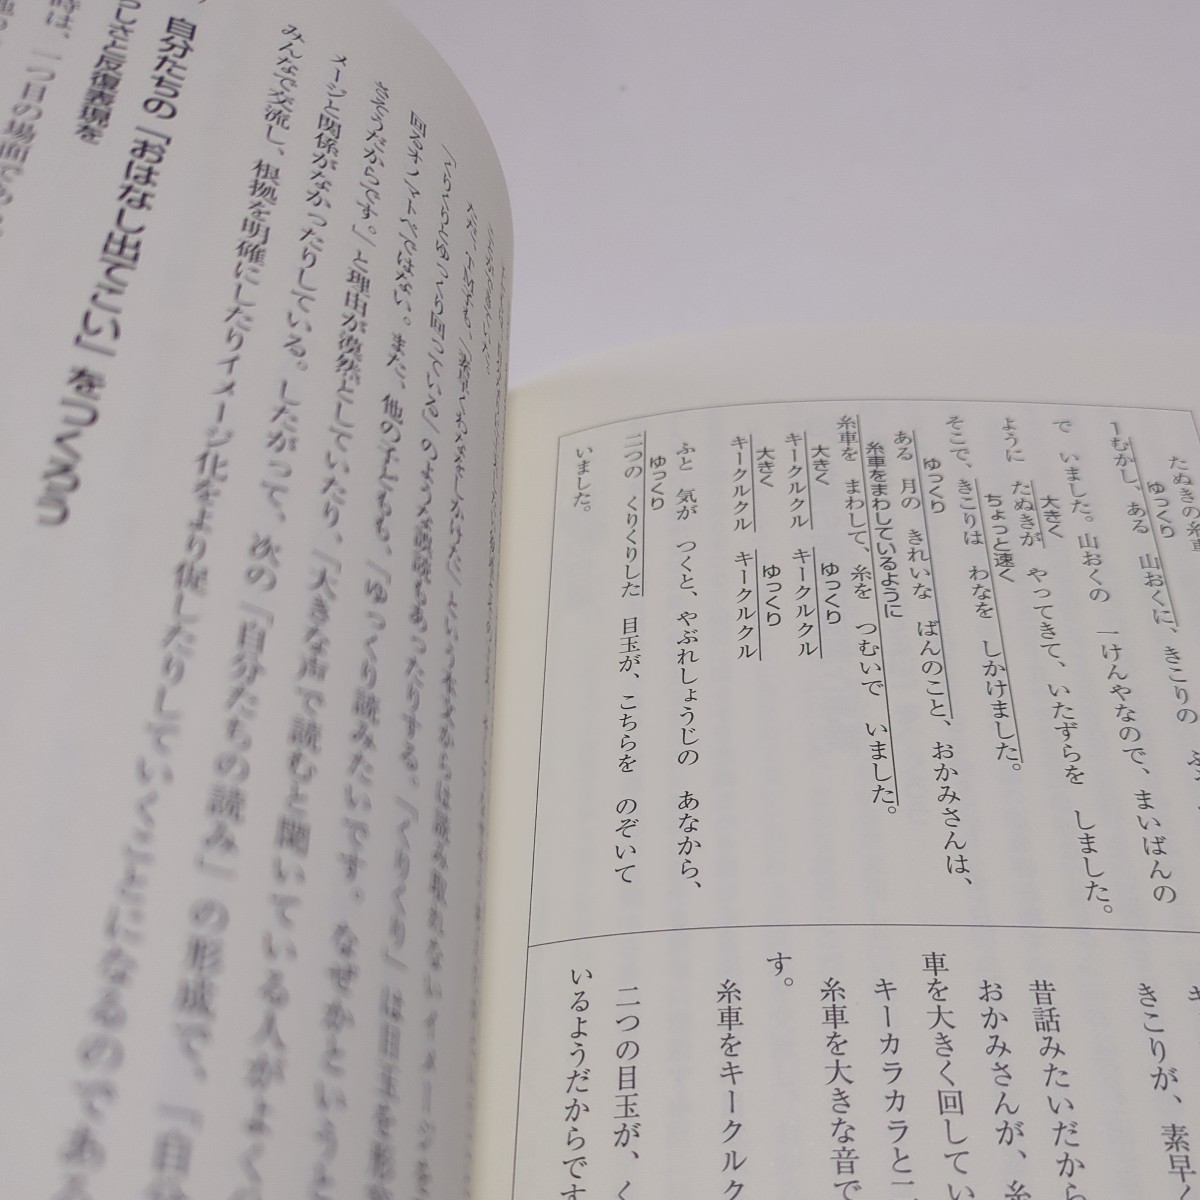 たぬきの糸車
ゆっくり
１むかし、ある 山おくに、きこりの
で いました。山おくの 一けんやなので、まいばんの
大きく
ように たぬきが やってきて、いたずらを しました。
ちょっと速く
そこで、きこりは わなを しかけました。
ゆっくり
ある 月の きれいな ばんのこと、おかみさんは、
糸車をまわしているように
糸車を まわして、糸を つむいで いました。
大きく ゆっくり
キークルクル キークルクル
大きく ゆっくり
キークルクル キークルクル
ふと 気が つくと、やぶれしょうじの あなから、
ゆっくり
二つの くりくりした 目玉が、こちらを のぞいて
いました。
きこりが、素早く
昔話みたいだから
おかみさんが、糸
車を大きく回してい
キーカラカラと二
糸車を大きな音で
す。
糸車をキークルク
二つの目玉が、く
いるようだからです
「くりくりとゆっくり回っている」のような誤読もあったりする。「くりくり」は目玉を形
回るオノマトペではない。また、他の子どもも、「ゆっくり読みたいです。なぜかというと
さそうだからです。」と理由が漠然としていたり、「大きな声で読むと聞いている人がよく
メージと関係がなかったりしている。したがって、次の「自分たちの読み」の形成で、「自
みんなで交流し、根拠を明確にしたりイメージ化をより促したりしていくことになるのであ
自分たちの「おはなし出てこい」をつくろう
しさと反復表現を
時は、一つ目の場面であ